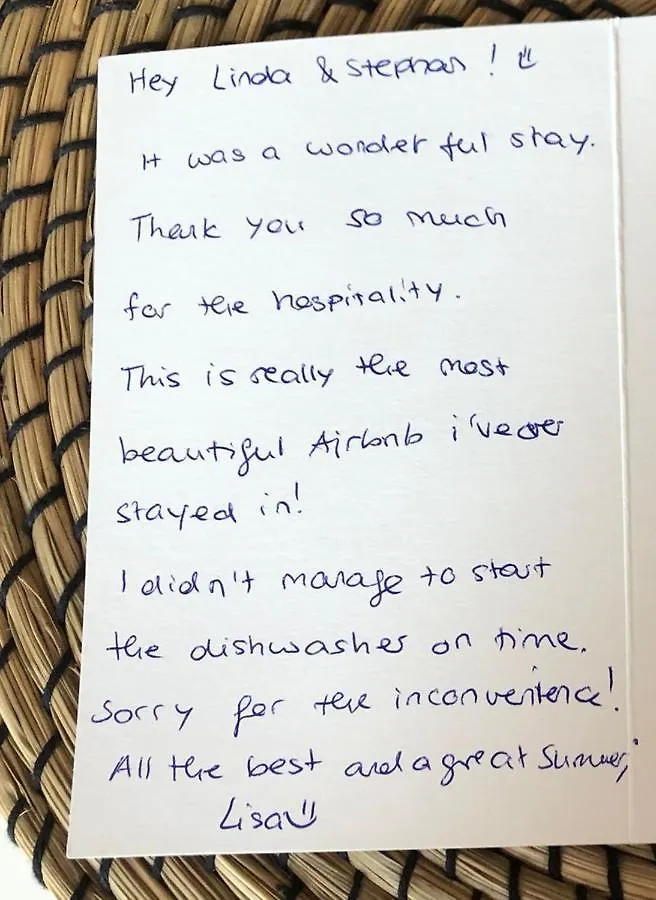 Hey Linda & Stephan! ☺
It was a wonderful stay.
Thank you so much
for the hospitality.
This is really the most
beautiful Airbnb i've ever
stayed in!
I didn't manage to start
the dishwasher on time.
Sorry for the inconvenience!
All the best and a great Summer,
Lisa☺